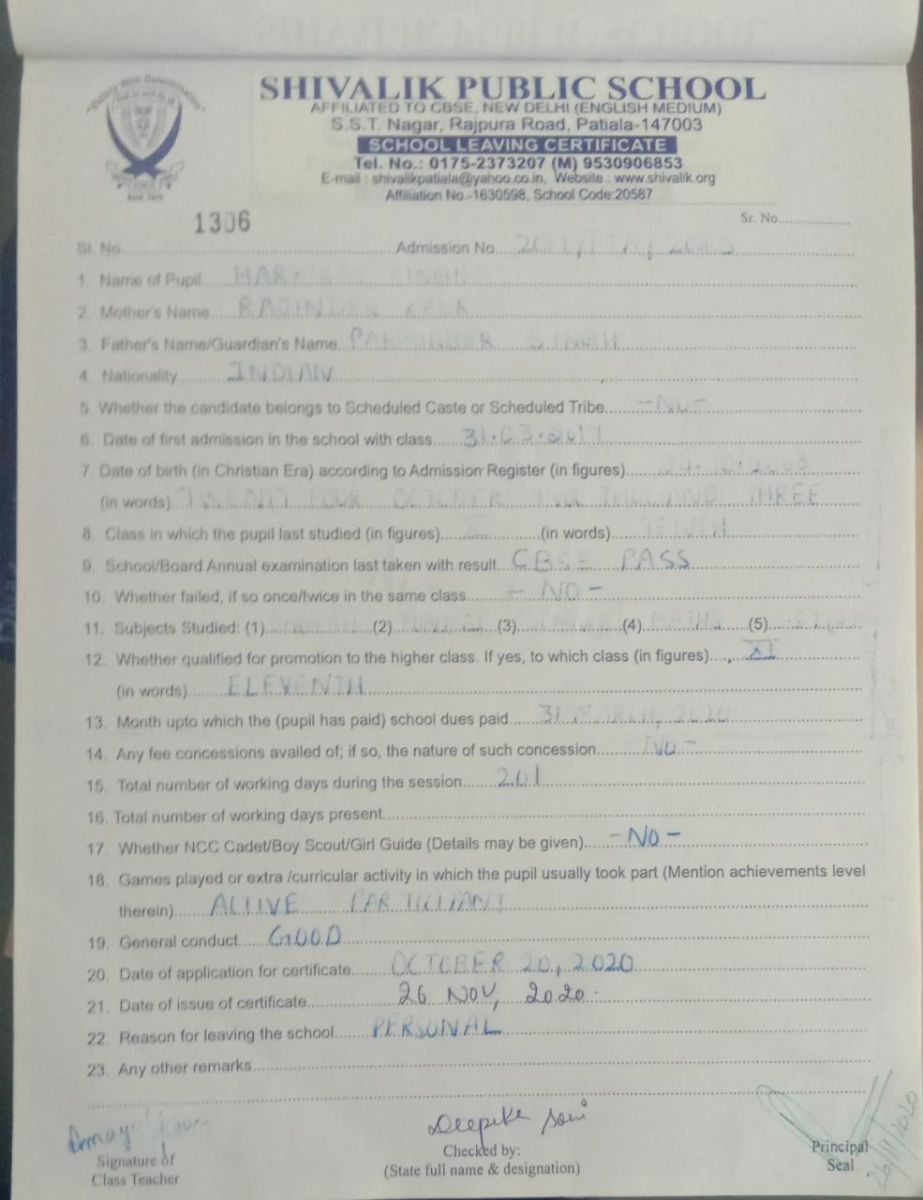 SHIVALIK PUBLIC SCHOOL
AFFILIATED TO CBSE, NEW DELHI (ENGLISH MEDIUM)
S.S.T. Nagar, Rajpura Road, Patiala-147003
SCHOOL LEAVING CERTIFICATE
Tel. No.: 0175-2373207 (M) 9530906853
E-mail : shivalikpatiala@yahoo.co.in, Website : www.shivalik.org
Affiliation No.-1630598, School Code:20587
1306
Sr. No.
Sl. No. Admission No.
1. Name of Pupil
2. Mother's Name RAJINDER KAUR
3. Father's Name/Guardian's Name PARMINDER SINGH
4. Nationality INDIAN
5. Whether the candidate belongs to Scheduled Caste or Scheduled Tribe -NO-
6. Date of first admission in the school with class 31.03.2011
7. Date of birth (in Christian Era) according to Admission Register (in figures) 24.10.2003
(in words) TWENTY FOUR OCTOBER TWO THOUSAND THREE
8. Class in which the pupil last studied (in figures) (in words) TENTH
9. School/Board Annual examination last taken with result CBSE PASS
10. Whether failed, if so once/twice in the same class - NO -
11. Subjects Studied: (1) (2) (3) (4) (5)
12. Whether qualified for promotion to the higher class. If yes, to which class (in figures) XI
(in words) ELEVENTH
13. Month upto which the (pupil has paid) school dues paid 31 MARCH, 2020
14. Any fee concessions availed of; if so, the nature of such concession NO -
15. Total number of working days during the session 201
16. Total number of working days present
17. Whether NCC Cadet/Boy Scout/Girl Guide (Details may be given) - NO -
18. Games played or extra /curricular activity in which the pupil usually took part (Mention achievements level
therein) ACTIVE PARTICIPANT
19. General conduct GOOD
20. Date of application for certificate OCTOBER 20, 2020
21. Date of issue of certificate 26 NOV, 2020.
22. Reason for leaving the school PERSONAL
23. Any other remarks
Deepika Soni
Signature of Class Teacher
Checked by:
(State full name & designation)
Principal
Seal
26/11/2020